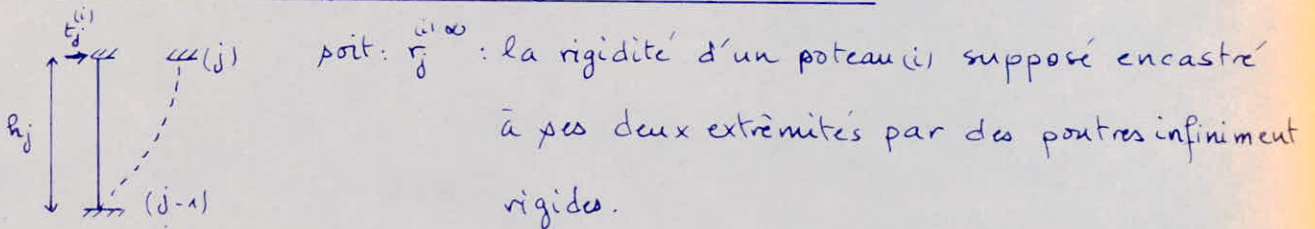 t_j^(i)
(j) soit: r_j^(i)∞ : la rigidité d'un poteau (i) supposé encastré
h_j
à ses deux extrêmités par des poutres infiniment
(j-1) rigides.